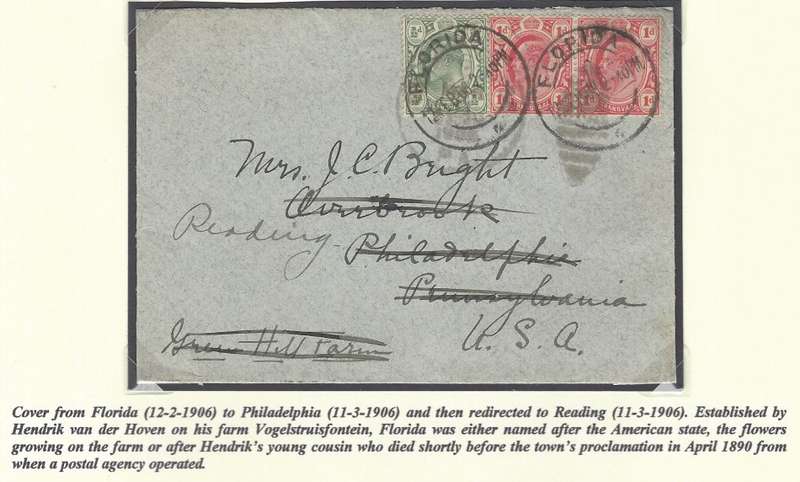 FLORIDA
FLORIDA
½d
1d
1d
1d
Mrs. J. C. Bright
Overbrook
Reading
Philadelphia
Pennsylvania
U. S. A.
Green Hill Farm
Cover from Florida (12-2-1906) to Philadelphia (11-3-1906) and then redirected to Reading (11-3-1906). Established by
Hendrik van der Hoven on his farm Vogelstruisfontein, Florida was either named after the American state, the flowers
growing on the farm or after Hendrik's young cousin who died shortly before the town's proclamation in April 1890 from
when a postal agency operated.